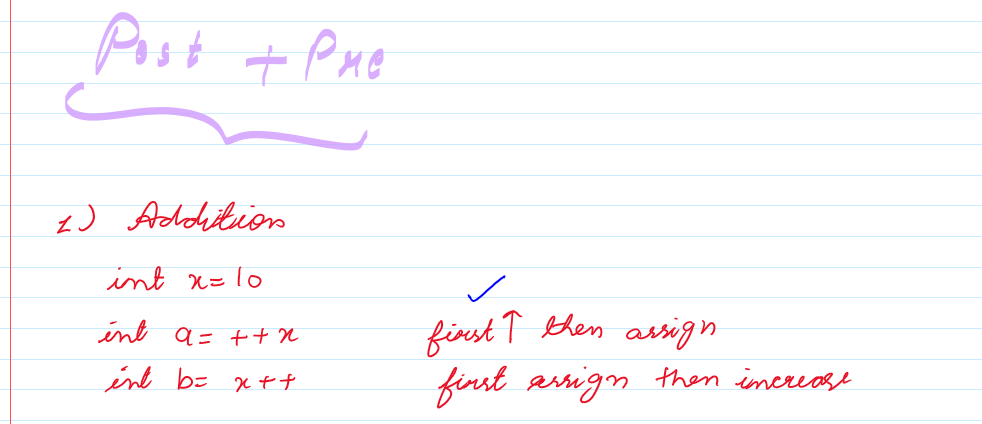 Post + Pre
1) Addition
int x=10
int a= ++x first↑ then assign
int b= x++ first assign then increase